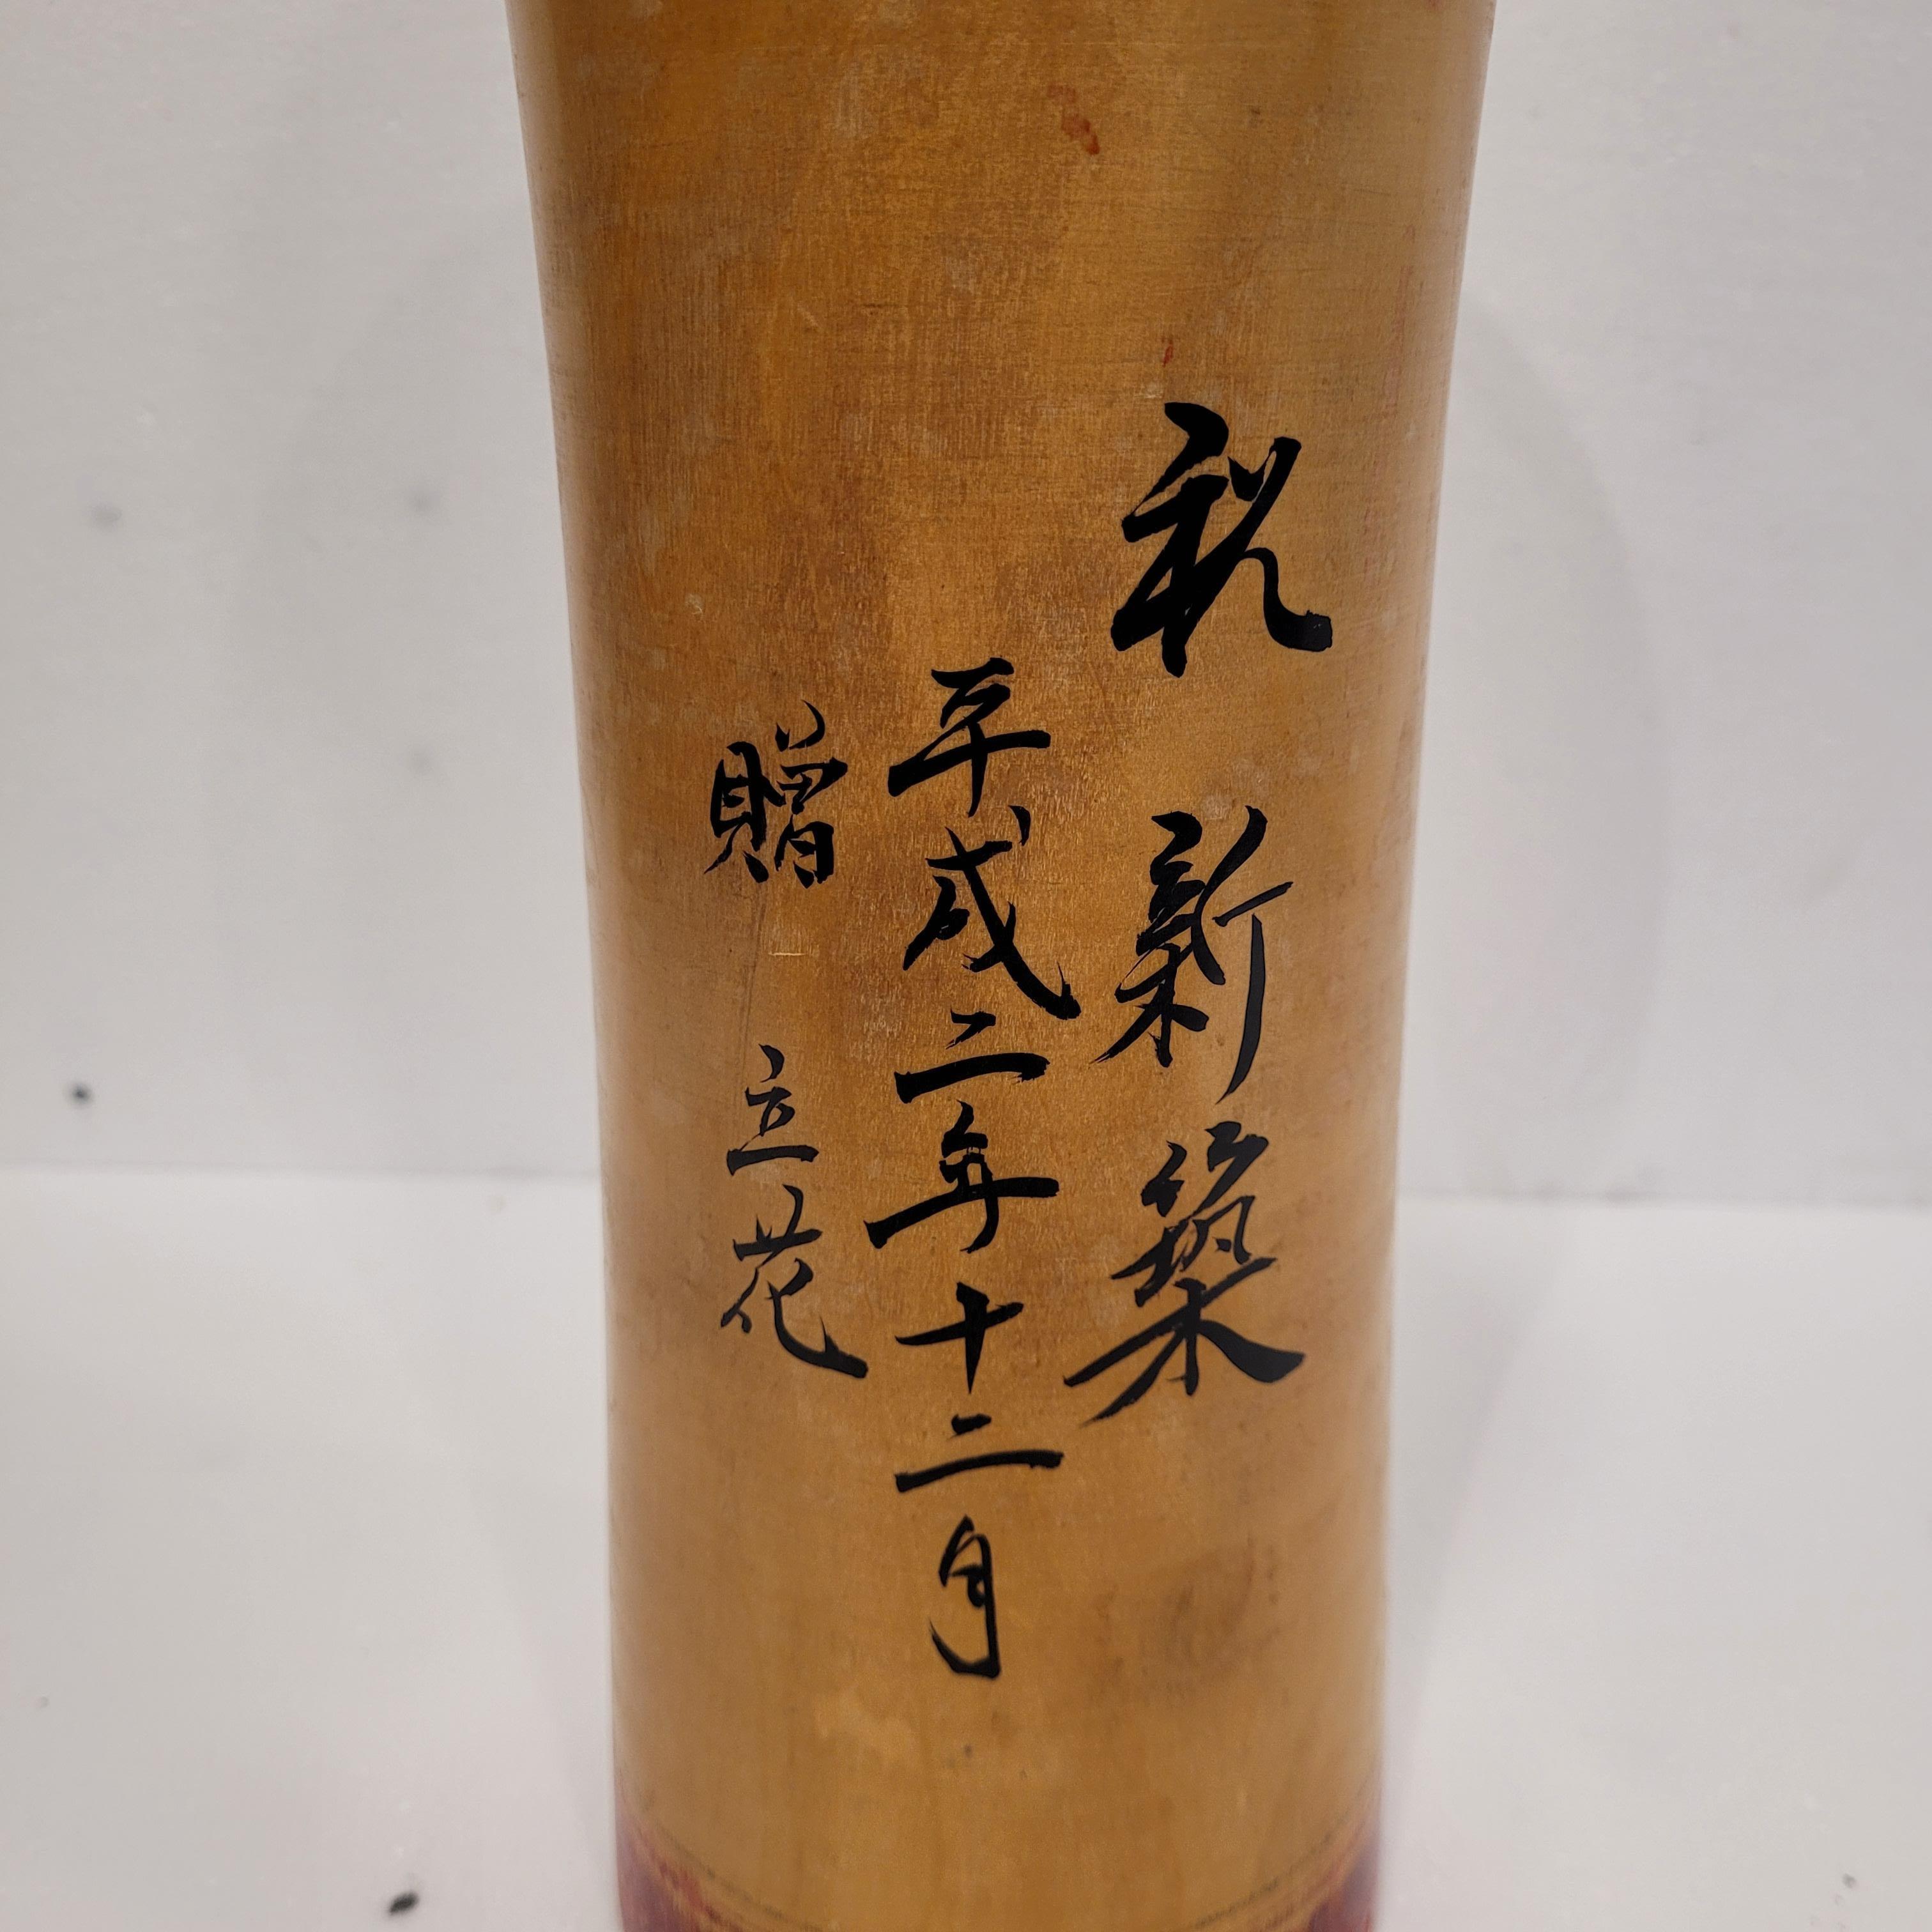 祝 新築
平成二年十二月
贈 立花